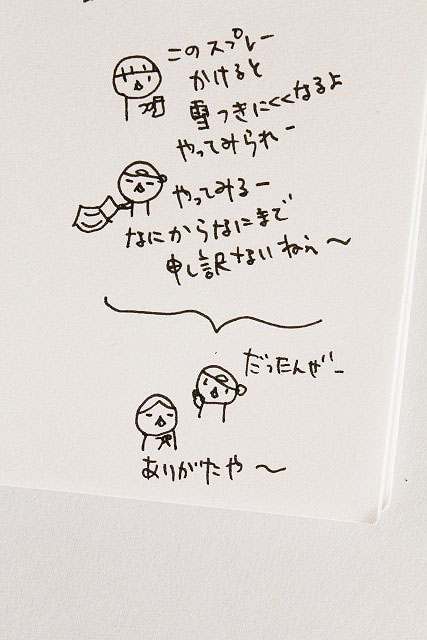 このスプレー
かけると
雪つきにくくなるよ
やってみられー
やってみるー
なにからなにまで
申し訳ないねぇ〜
だったんぜー
ありがたや〜